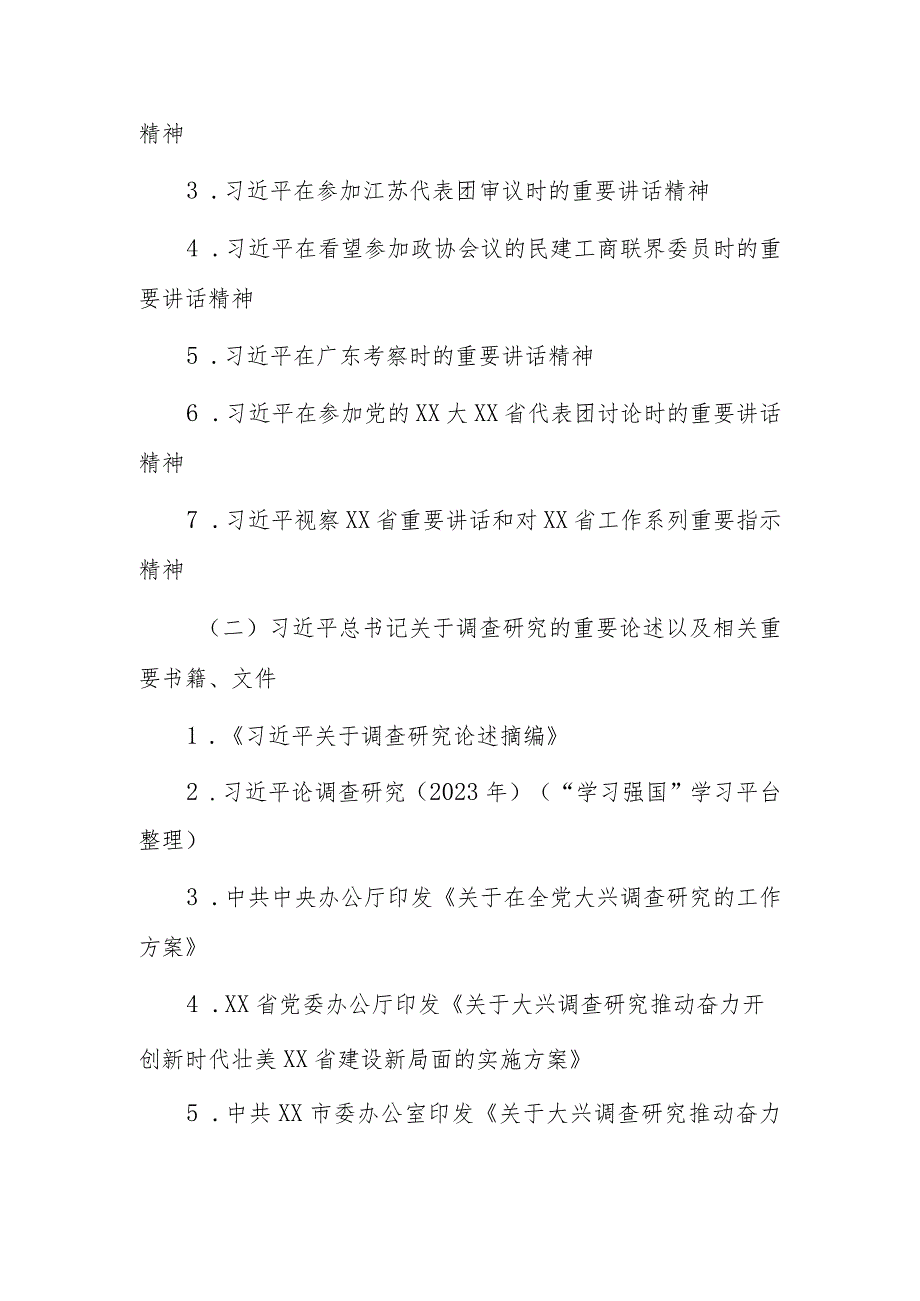 精神
3 .习近平在参加江苏代表团审议时的重要讲话精神
4 .习近平在看望参加政协会议的民建工商联界委员时的重
要讲话精神
5 .习近平在广东考察时的重要讲话精神
6 .习近平在参加党的XX大XX省代表团讨论时的重要讲话
精神
7 .习近平视察XX省重要讲话和对XX省工作系列重要指示
精神
（二）习近平总书记关于调查研究的重要论述以及相关重
要书籍、文件
1 .《习近平关于调查研究论述摘编》
2 .习近平论调查研究（2023年）（“学习强国”学习平台
整理）
3 .中共中央办公厅印发《关于在全党大兴调查研究的工作
方案》
4 .XX省党委办公厅印发《关于大兴调查研究推动奋力开
创新时代壮美XX省建设新局面的实施方案》
5 .中共XX市委办公室印发《关于大兴调查研究推动奋力